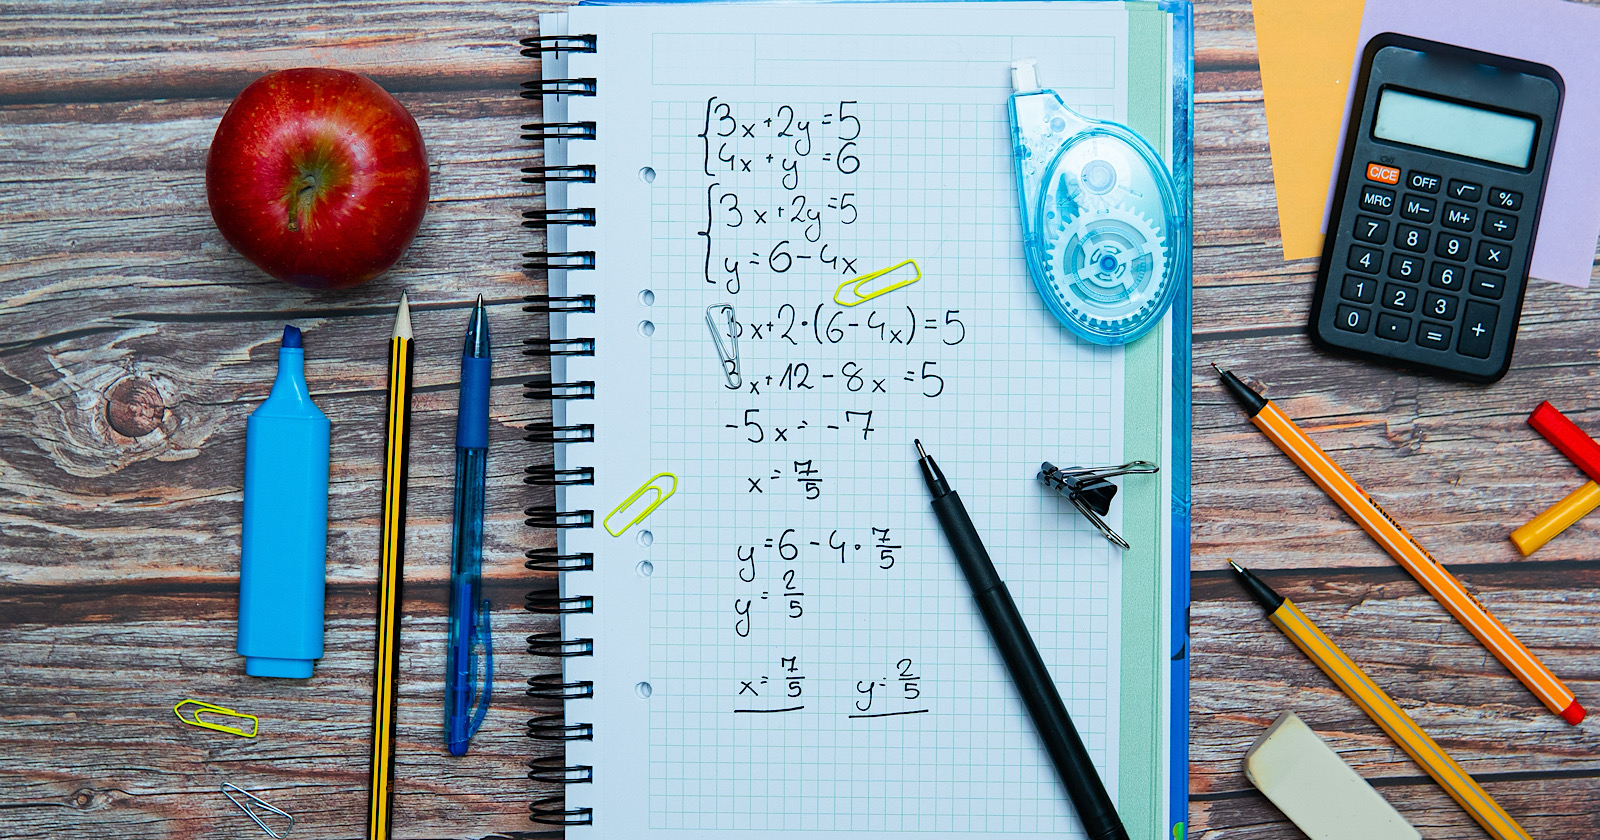 3x+2y=5
4x+y=6
3x+2y=5
y=6-4x
3x+2·(6-4x)=5
3x+12-8x=5
-5x=-7
x=7/5
y=6-4·7/5
y=2/5
x=7/5 y=2/5
C/CE OFF √ %
MRC M− M+ ÷
7 8 9 ×
4 5 6 −
1 2 3 +
0 · =
STABILO